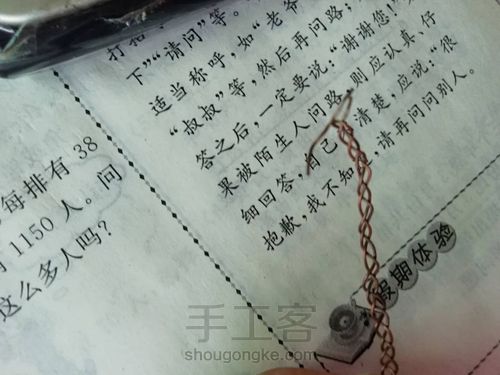 打扰
下”“请问”等。
适当称呼,如“老爷
“叔叔”等,然后再问路;
答之后,一定要说:“谢谢您!”
果被陌生人问路,则应认真、仔
细回答,自己 清楚,应说:“很
抱歉,我不知 ,请再问问别人。
假期体验
每排有 38
1150 人。问
这么多人吗?
手工客
shougongke.com